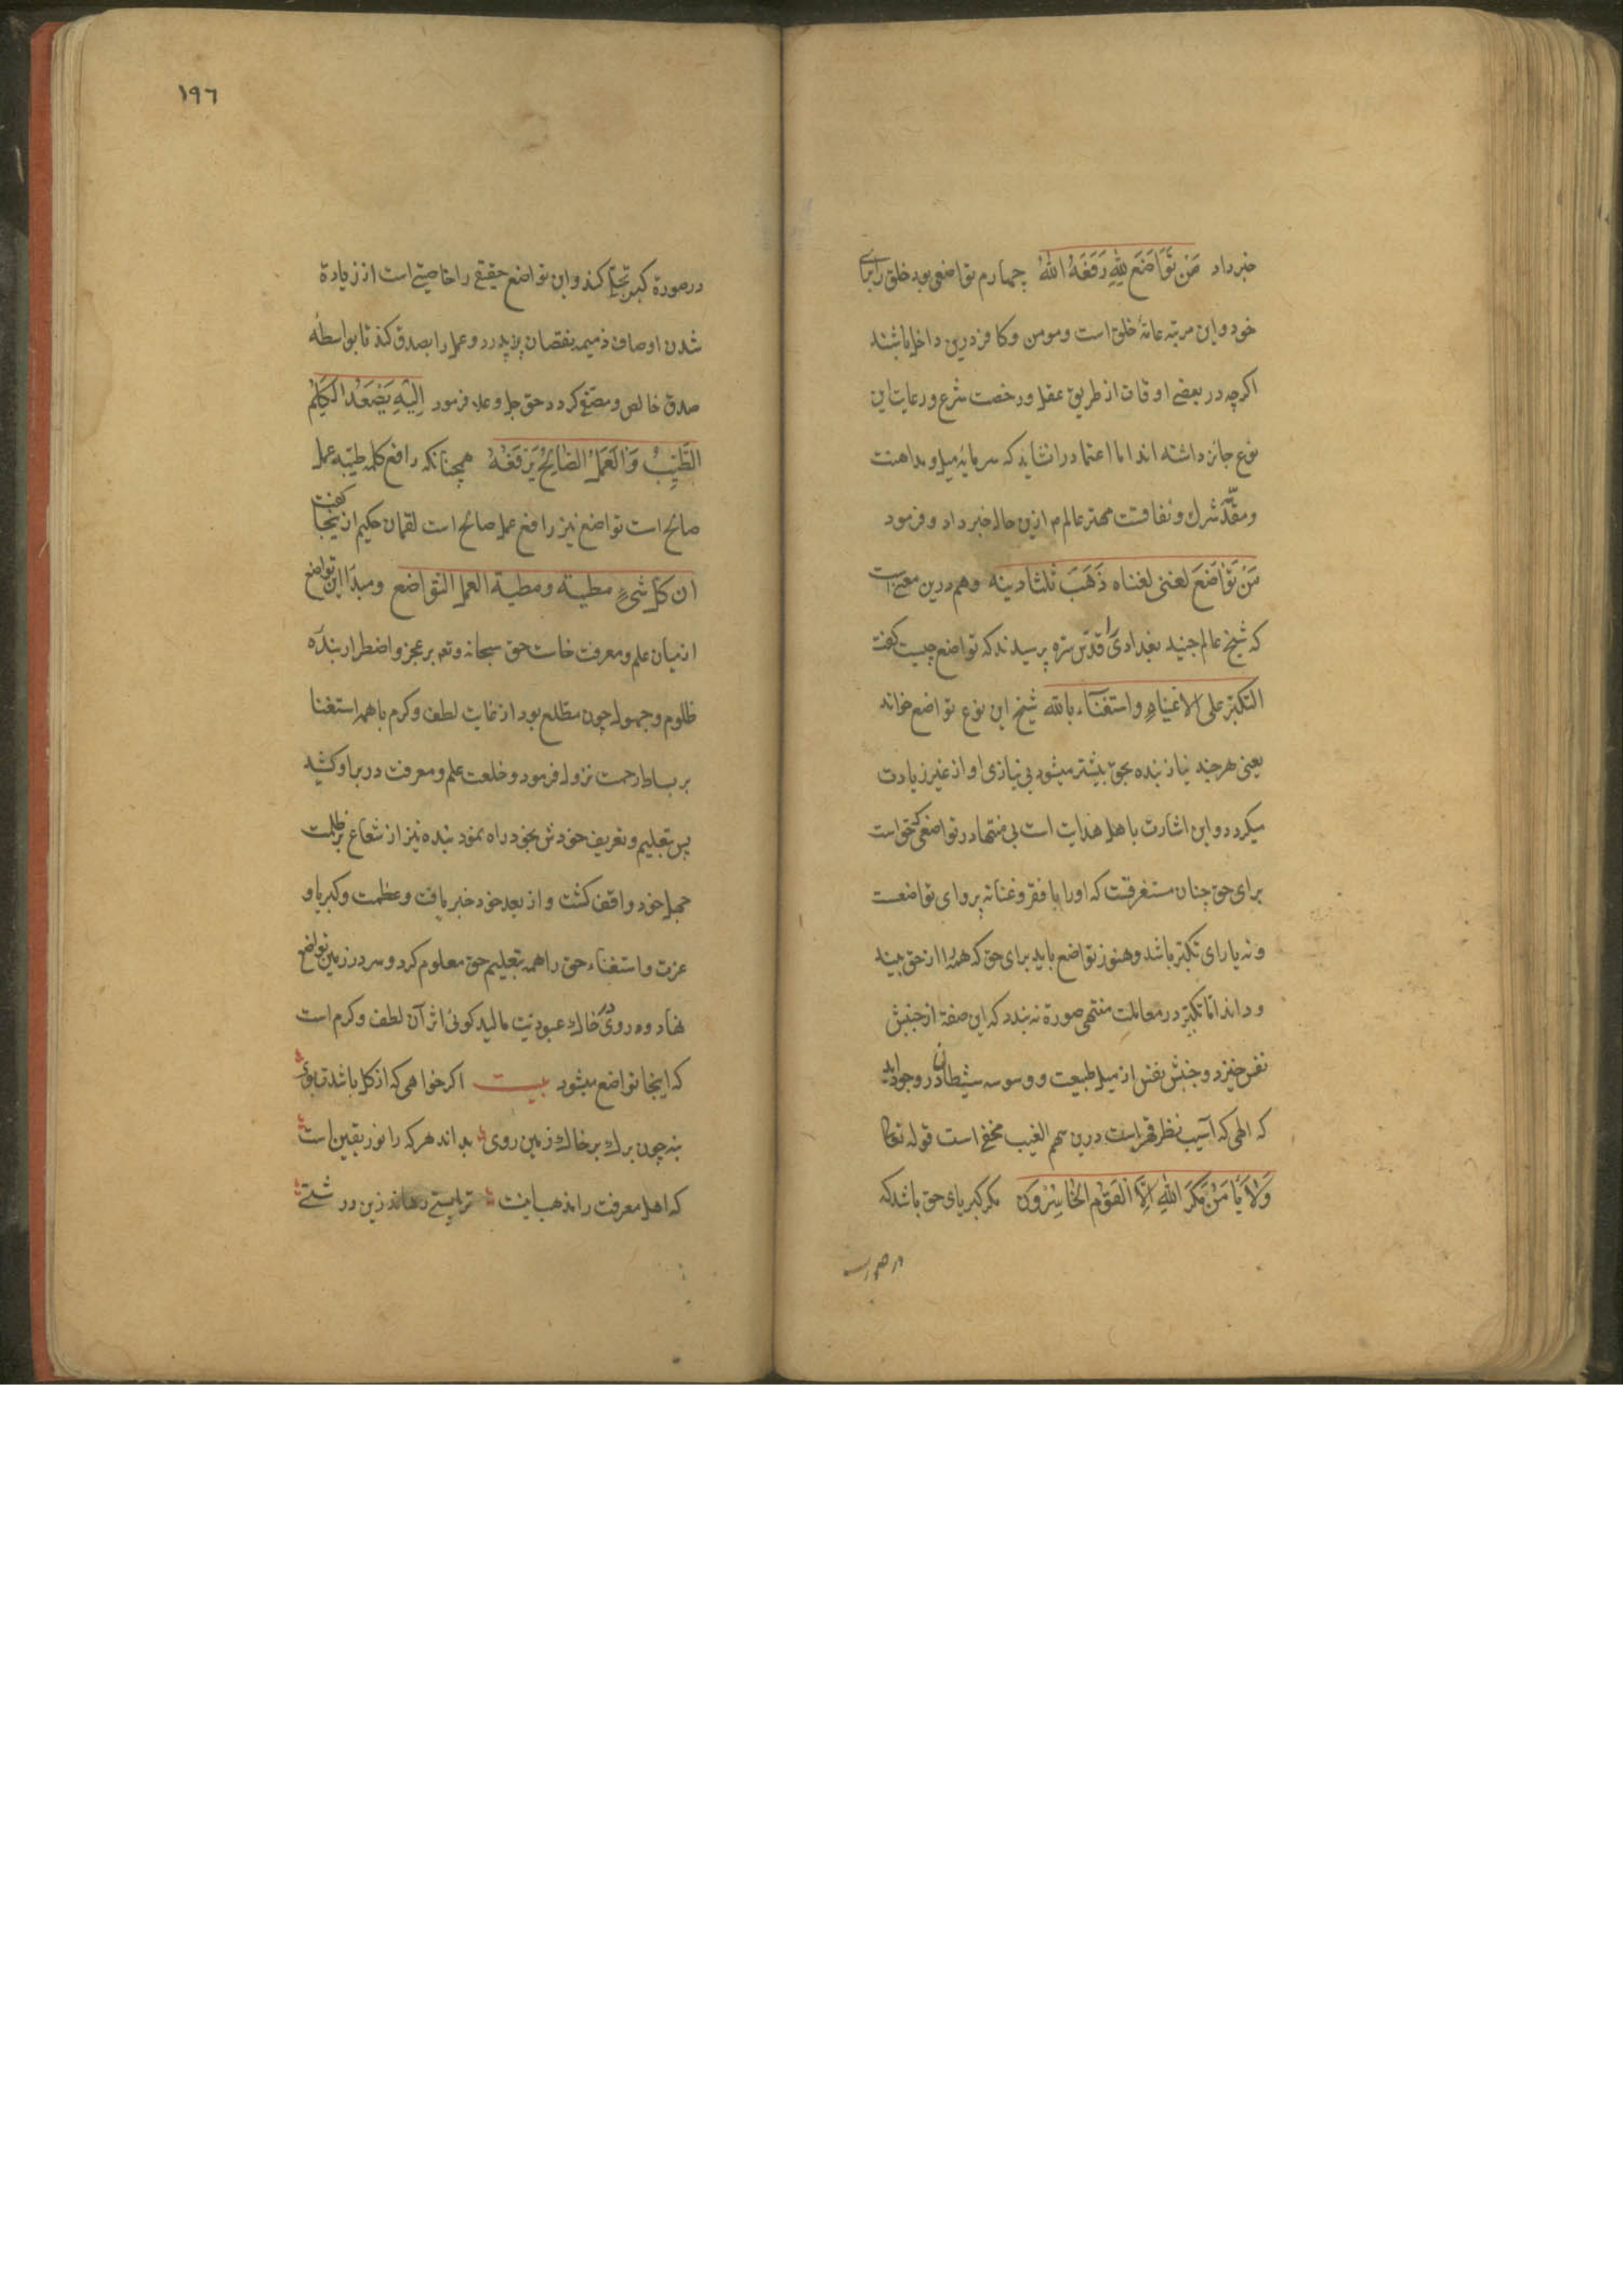 خبر داد مَنْ تَوَاضَعَ لِلّهِ رَفَعَهُ اللهُ چهارم تواضعی بود خلق را برای
خود و این مرتبه عامهٔ خلق است و مومن و کافر درین داخل باشند
اکرچه در بعضی اوقات از طریق عقل و رخصت شرع و رعایت این
نوع جائز داشته اند اما اعتماد را نشاید که سرمایهٔ میل و مداهنت
و شرك و نفاقست مهتر عالم م ازین حال خبر داد و فرمود
مَنْ تَوَاضَعَ لغنی لغناه ذَهَبَ ثلثا دینه و هم درین معنی است
که شیخ عالم جنید بغدادی را قدّس سرّه پرسیدند که تواضع چیست کفت
التکبّر علی الاغنیاء و استغناء بالله شیخ این نوع تواضع خواند
یعنی هرچند نیاز بنده بحق بیشتر میشود بی نیازی او از غیر زیادت
میکردد و این اشارت باهل هدایت است بی منتها در تواضعی که حق است
برای حق چنان مستغرقست که او را با فقر و غنا نه پروای تواضعست
و نه یارای تکبّر باشد و هنوز تواضع باید برای حق که همه را از حق بیند
و داند امّا تکبّر در معاملت منتهی صورة نه بندد که این صفة از جنبش
نفس خیزد و جنبش نفس از میل طبیعت و وسوسه شیطان در وجود آید
که الهی که آسیب نظر قهر است درین سهم الغیب مخفی است قوله تعالی
وَلاَ یَأمَنُ مَکْرَ اللهِ اِلاَّ الْقَوْمُ الْخَاسِرُونَ مکر کبریای حق باشد که
در صورت
١٩٦
در صورة کبر تجلّی کند و این تواضع حقیقی را خاصیتی است از زیادة
شدن اوصاف ذمیمه نقصان پذیرد و عمل را بصدق کند تا بواسطهٔ
صدق خالص و مصفی کردد حق جل و علا فرمود اِلَیْهِ یَصْعَدُ الکَلِمُ
الطَّیِّبُ وَالْعَمَلُ الصَّالِحُ یَرْفَعُهُ همچنانکه رافع کلمه طیّبه عمل
صالح است تواضع نیز رافع عمل صالح است لقمان حکیم ازینجا کفت
ان کل شیءٍ مطیة و مطیة العمل التواضع و مبدأ این تواضع
از میان علم و معرفت خاست حق سبحانه و تعا بر عجز و اضطرار بندهٔ
ظلوم و جهول چون مطلع بود از غایت لطف و کرم با همه استغنا
بر بساط رحمت نزول فرمود و خلعت علم و معرفت در بر او کشید
پس بتعلیم و تعریف خودش بخود راه نمود بنده نیز از شعاع بر ظلمت
جهل خود واقف کشت و از بعد خود خبر یافت و عظمت و کبریا و
عزت و استغناء حق را همه بتعلیم حق معلوم کرد و سر در زمین تواضع
نهاد و روی در خاك عبودیت مالید کوئی اثر آن لطف و کرم است
که اینجا تواضع میشود بیت اکر خواهی که از کل باشدت بوی
بنه چون برك بر خاك زمین روی بداند هر که را نور یقین است
که اهل معرفت را مذهب اینست ترا پستی رهاند زین درشتی